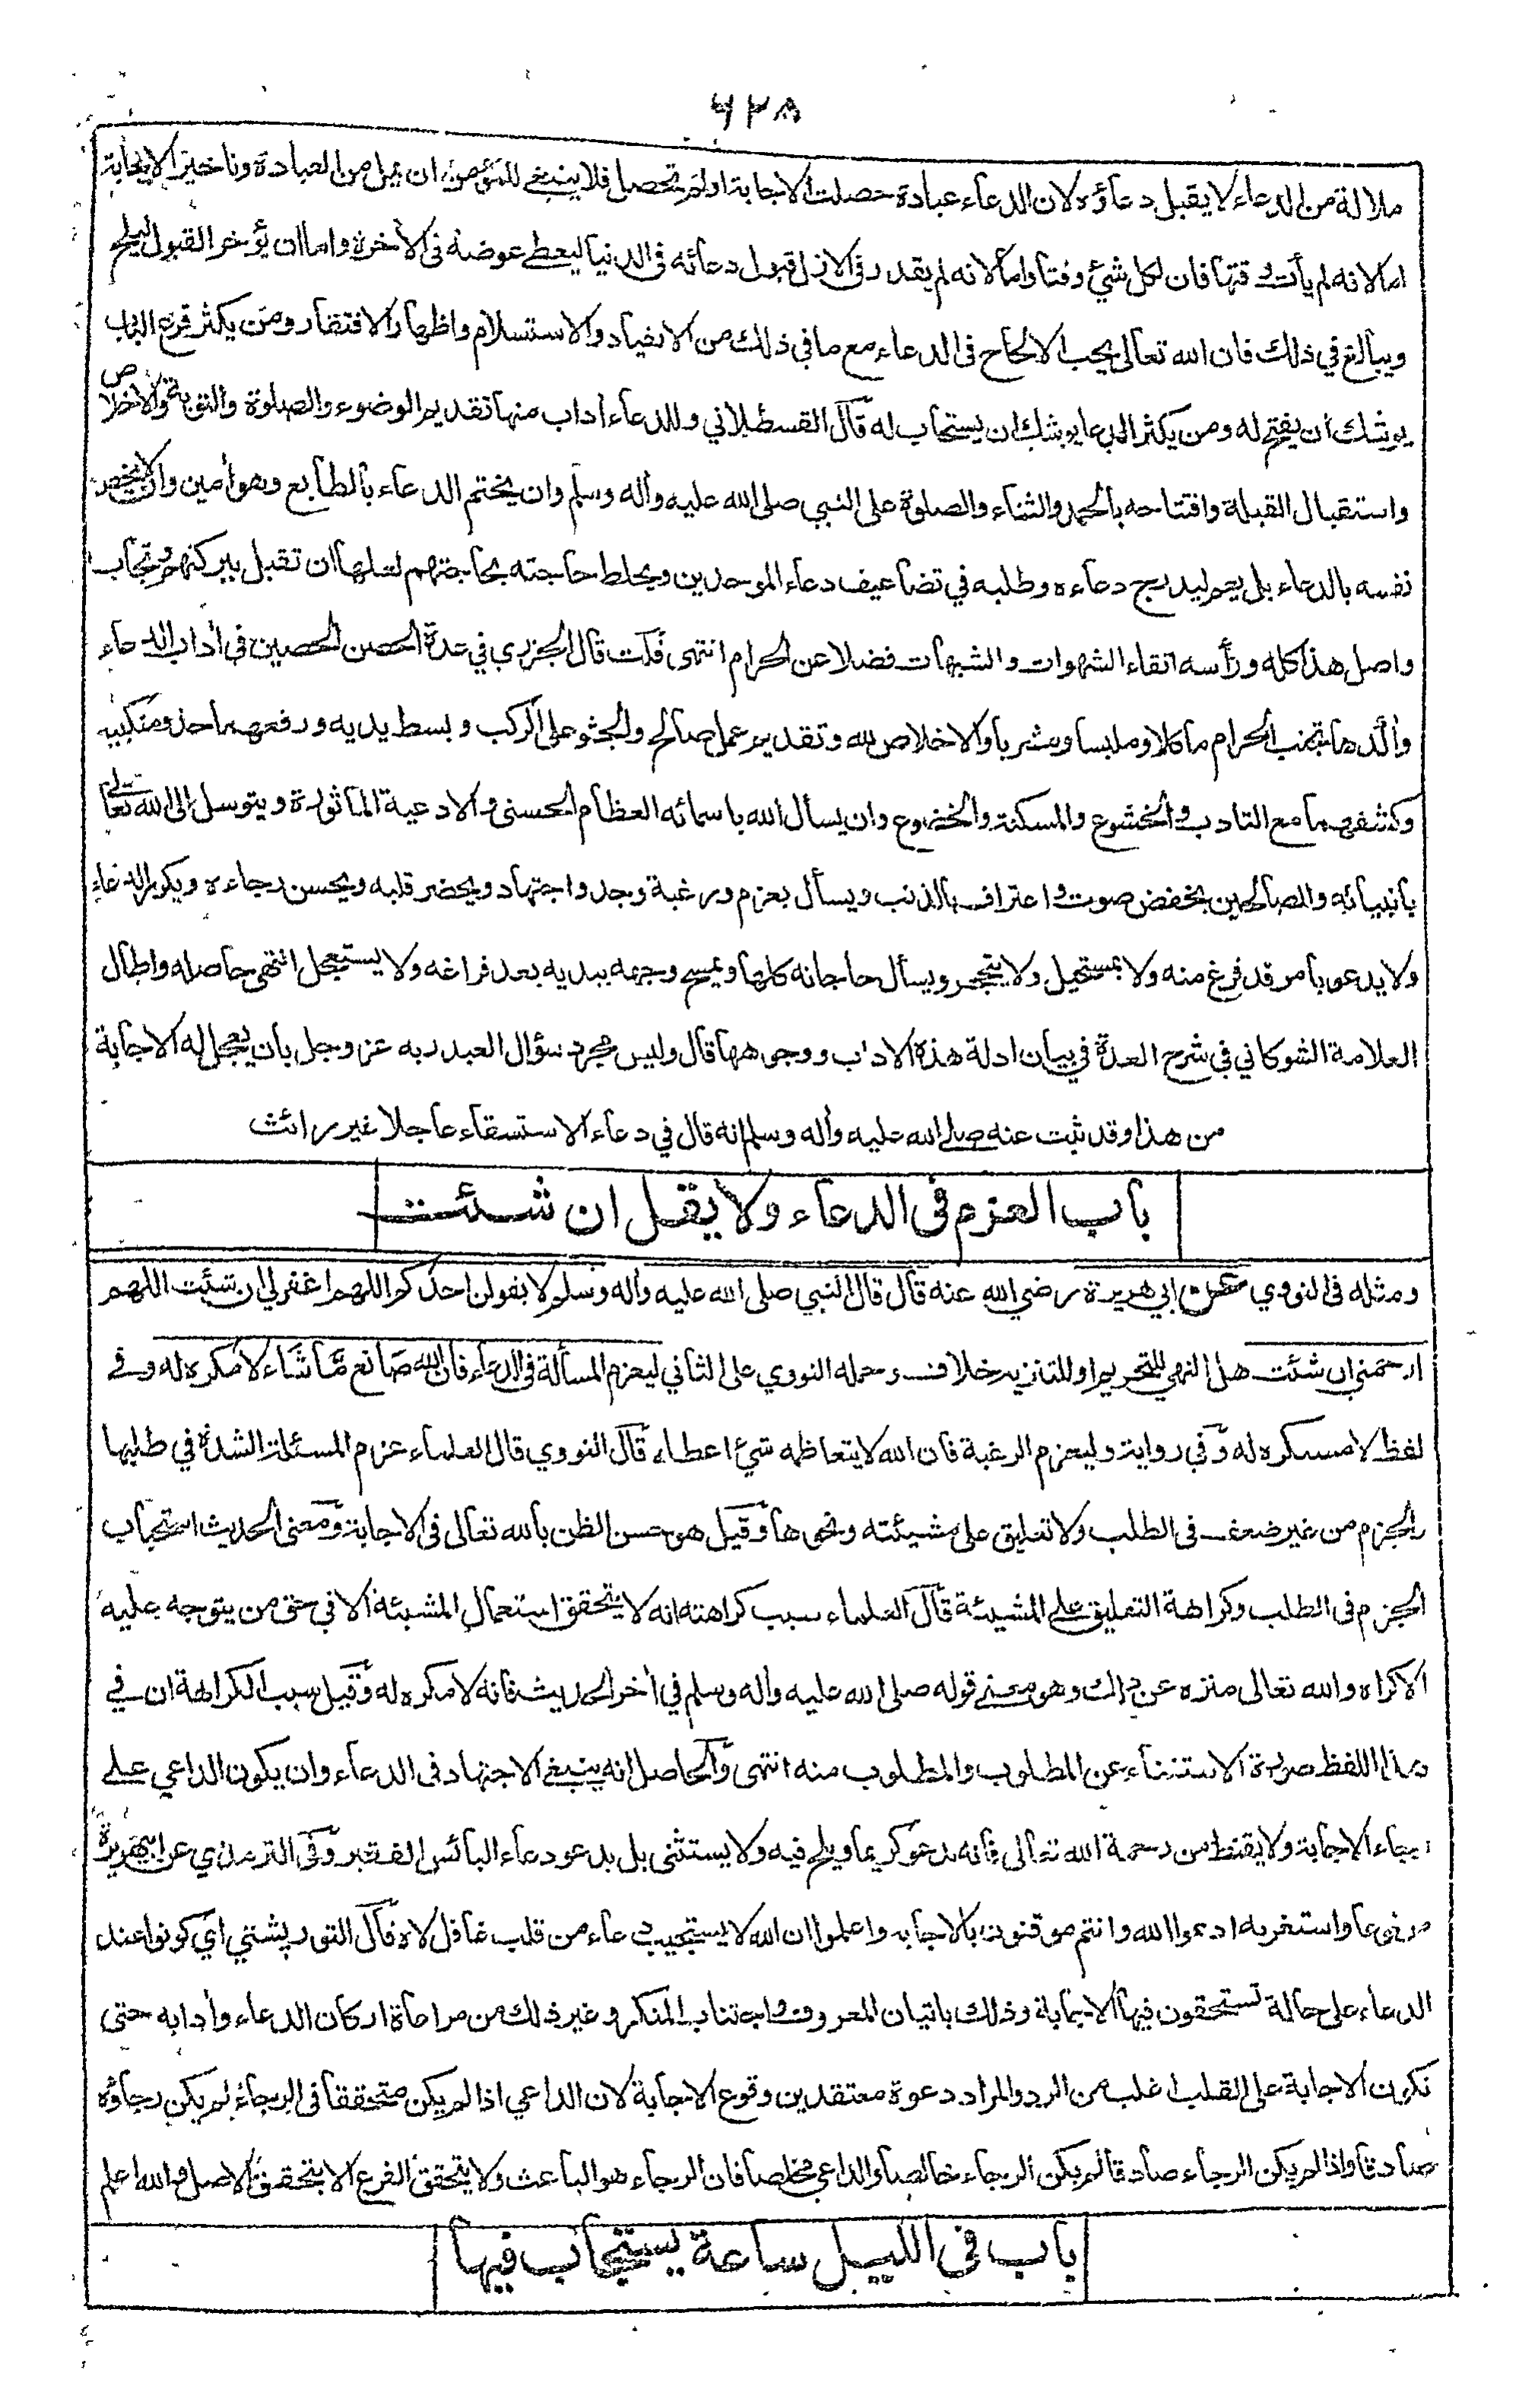 ٦٢٨
ملالة من الدعاء لا يقبل دعاؤه لان الدعاء عبادة حصلت الاجابة اولم تحصل فلا ينبغي للمؤمن ان يمل من العبادة وتاخير الاجابة
اما لانه لم يأت وقتها فان لكل شيء وقتا واما لانه لم يقدر في الازل قبول دعائه في الدنيا ليعطى عوضه في الاخرة واما ان يؤخر القبول ليلح
ويبالغ في ذلك فان الله تعالى يحب الالحاح في الدعاء مع ما في ذلك من الانقياد والاستسلام واظهار الافتقار ومن يكثر قرع الباب
يوشك ان يفتح له ومن يكثر الدعا يوشك ان يستجاب له قال القسطلاني وللدعاء اداب منها تقديم الوضوء والصلوة والتوبة والاخلاص
واستقبال القبلة وافتتاحه بالحمد والثناء والصلوة على النبي صلى الله عليه وأله وسلم وان يختم الدعاء بالطابع وهو أمين وان لا يخص
نفسه بالدعاء بل يعم ليدرج دعاءه وطلبه في تضاعيف دعاء الموحدين ويخلط حاجته بحاجتهم لعلها ان تقبل ببركتهم وتجاب
واصل هذا كله ورأسه اتقاء الشهوات والشبهات فضلا عن الحرام انتهى قلت قال الجزري في عدة الحصن الحصين في أداب الدعاء
وأكدها تجنب الحرام مأكلا وملبسا ومشربا والاخلاص لله وتقديم عمل صالح والجثو على الركب وبسط يديه ورفعهما حذو منكبيه
وكشفهما مع التادب والخشوع والمسكنة والخضوع وان يسأل الله باسمائه العظام الحسنى والادعية الماثورة ويتوسل الى الله تعالى
بانبيائه والصالحين بخفض صوت واعتراف بالذنب ويسأل بعزم ورغبة وجد واجتهاد ويحضر قلبه ويحسن رجاءه ويكرر الدعاء
ولا يدعو بامر قد فرغ منه ولا بمستحيل ولا يتحجر ويسأل حاجاته كلها ويمسح وجهه بيديه بعد فراغه ولا يستعجل انتهى حاصله واطال
العلامة الشوكاني في شرح العدة في بيان ادلة هذه الاداب ووجوهها قال وليس مجرد سؤال العبد ربه عز وجل بان يعجل له الاجابة
من هذا وقد ثبت عنه صلى الله عليه وأله وسلم انه قال في دعاء الاستسقاء عاجلا غير رائث
باب العزم في الدعاء ولا يقل ان شئت
ومثله في النووي عن ابي هريرة رضي الله عنه قال قال النبي صلى الله عليه وأله وسلم لا يقولن احدكم اللهم اغفر لي ان شئت اللهم
ارحمني ان شئت هل النهي للتحريم او للتنزيه خلاف وحمله النووي على الثاني ليعزم المسألة في الدعاء فان الله صانع ما شاء لا مكره له وفي
لفظ لا مستكره له وفي رواية وليعزم الرغبة فان الله لا يتعاظمه شيء اعطاه قال النووي قال العلماء عزم المسئلة الشدة في طلبها
والجزم من غير ضعف في الطلب ولا تعليق على مشيئته ونحوها وقيل هو حسن الظن بالله تعالى في الاجابة ومعنى الحديث استحباب
الجزم في الطلب وكراهة التعليق على المشيئة قال العلماء سبب كراهته انه لا يتحقق استعمال المشيئة الا في حق من يتوجه عليه
الاكراه والله تعالى منزه عن ذلك وهو معنى قوله صلى الله عليه وأله وسلم في أخر الحديث فانه لا مكره له وقيل سبب الكراهة ان في
هذا اللفظ صورة الاستغناء عن المطلوب والمطلوب منه انتهى والحاصل انه ينبغي الاجتهاد في الدعاء وان يكون الداعي على
رجاء الاجابة ولا يقنط من رحمة الله تعالى فانه يدعو كريما ويلح فيه ولا يستثنى بل يدعو دعاء البائس الفقير وفي الترمذي عن ابي هريرة
مرفوعا واستغربه ادعوا الله وانتم موقنون بالاجابة واعلموا ان الله لا يستجيب دعاء من قلب غافل لاه قال التوربشتي اي كونوا عند
الدعاء على حالة تستحقون فيها الاجابة وذلك باتيان المعروف واجتناب المنكر وغير ذلك من مراعاة اركان الدعاء وأدابه حتى
تكون الاجابة على القلب اغلب من الرد والمراد دعوة معتقدين وقوع الاجابة لان الداعي اذا لم يكن متحققا في الرجاء لم يكن رجاؤه
صادقا واذا لم يكن الرجاء صادقا لم يكن الرجاء خالصا والداعي مخلصا فان الرجاء هو الباعث ولا يتحقق الفرع الا بتحقق الاصل والله اعلم
باب في الليل ساعة يستجاب فيها